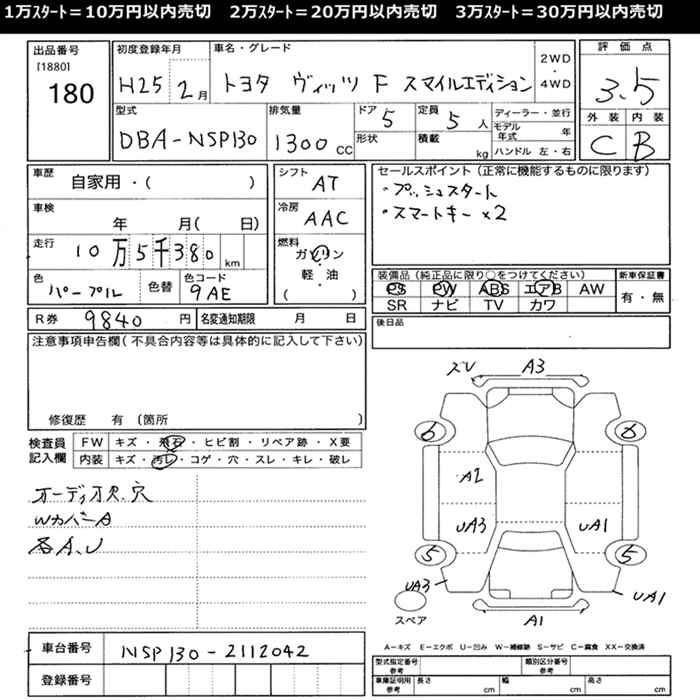 1万ｽﾀｰﾄ＝10万円以内売切　2万ｽﾀｰﾄ＝20万円以内売切　3万ｽﾀｰﾄ＝30万円以内売切
出品番号
[1880]
180
初度登録年月
H25 2月
車名・グレード
トヨタ ヴィッツ F スマイルエディション
2WD
・
4WD
評価点
3.5
型式
DBA-NSP130
排気量
1300 CC
ドア 5
形状
定員 5 人
積載 kg
ディーラー・並行
モデル年式 年
ハンドル 左・右
外装 内装
C B
車歴 自家用・( )
車検 年 月( 日)
走行 10万5千380 km
色 パープル 色替 色コード 9AE
シフト AT
冷房 AAC
燃料 ガソリン
軽・油
( )
セールスポイント（正常に機能するものに限ります）
・プッシュスタート
・スマートキー×2
装備品（純正品に限り○をつけてください）
PS PW ABS エアB AW
SR ナビ TV カワ
新車保証書
有・無
R券 9840 円 名変通知期限 月 日
後日品
注意事項申告欄（不具合内容等は具体的に記入して下さい）
修復歴 有〔箇所
検査員記入欄
FW キズ・飛石・ヒビ割・リペア跡・X要
内装 キズ・汚レ・コゲ・穴・スレ・キレ・破レ
オーディオR.穴
WカバーA
各A、U
ズレ A3
6 6
A2
UA3 UA1
5 5
UA3 UA1
スペア A1
A－キズ E－エクボ U－凹み W－補修跡 S－サビ C－腐食 XX－交換済
車台番号 NSP130-2112042
登録番号
型式指定番号 参考
類別区分番号 参考
車庫証明用 参考 長さ cm 幅 cm 高さ cm